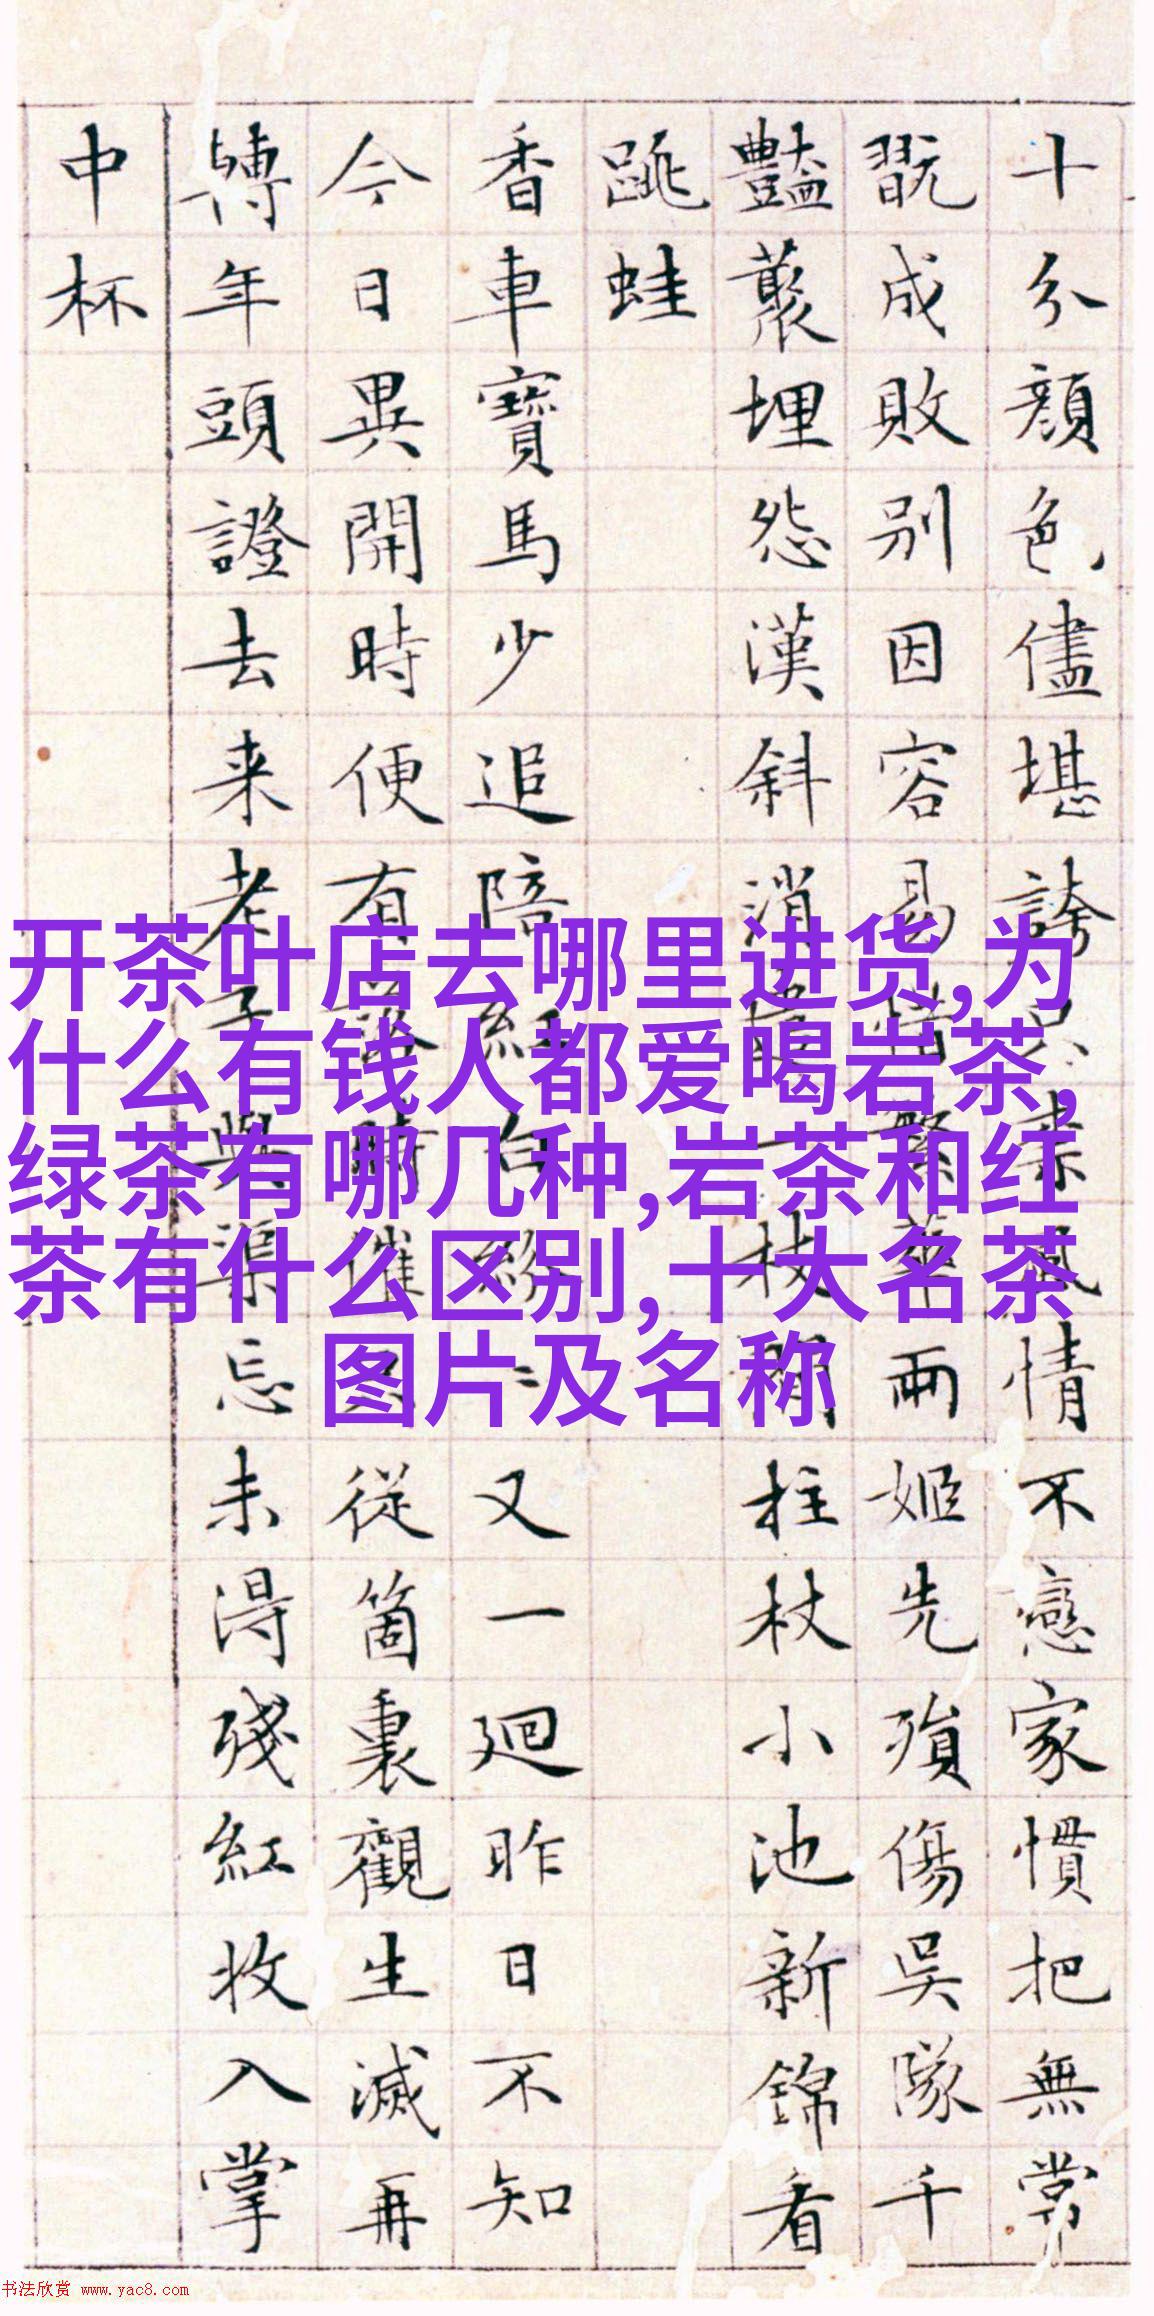 十分顏色儘堪誇只柰風情不戀家慣把無常
翫成敗別因容易惜繁華兩姬先殞傷吳隊千
豔藂埋怨漢斜消一枝閒柱杖小池新錦看
跳蛙
香車寶馬少追陪紅白紛〻又一廻昨日不知
今日異開時便有落時催只從箇裏觀生滅再
轉年頭證去来老子與渠忘未得殘紅收入掌
中杯
开茶叶店去哪里进货,为
什么有钱人都爱喝岩茶,
绿茶有哪几种,岩茶和红
茶有什么区别,十大名茶
图片及名称
书法欣赏 www.yac8.com